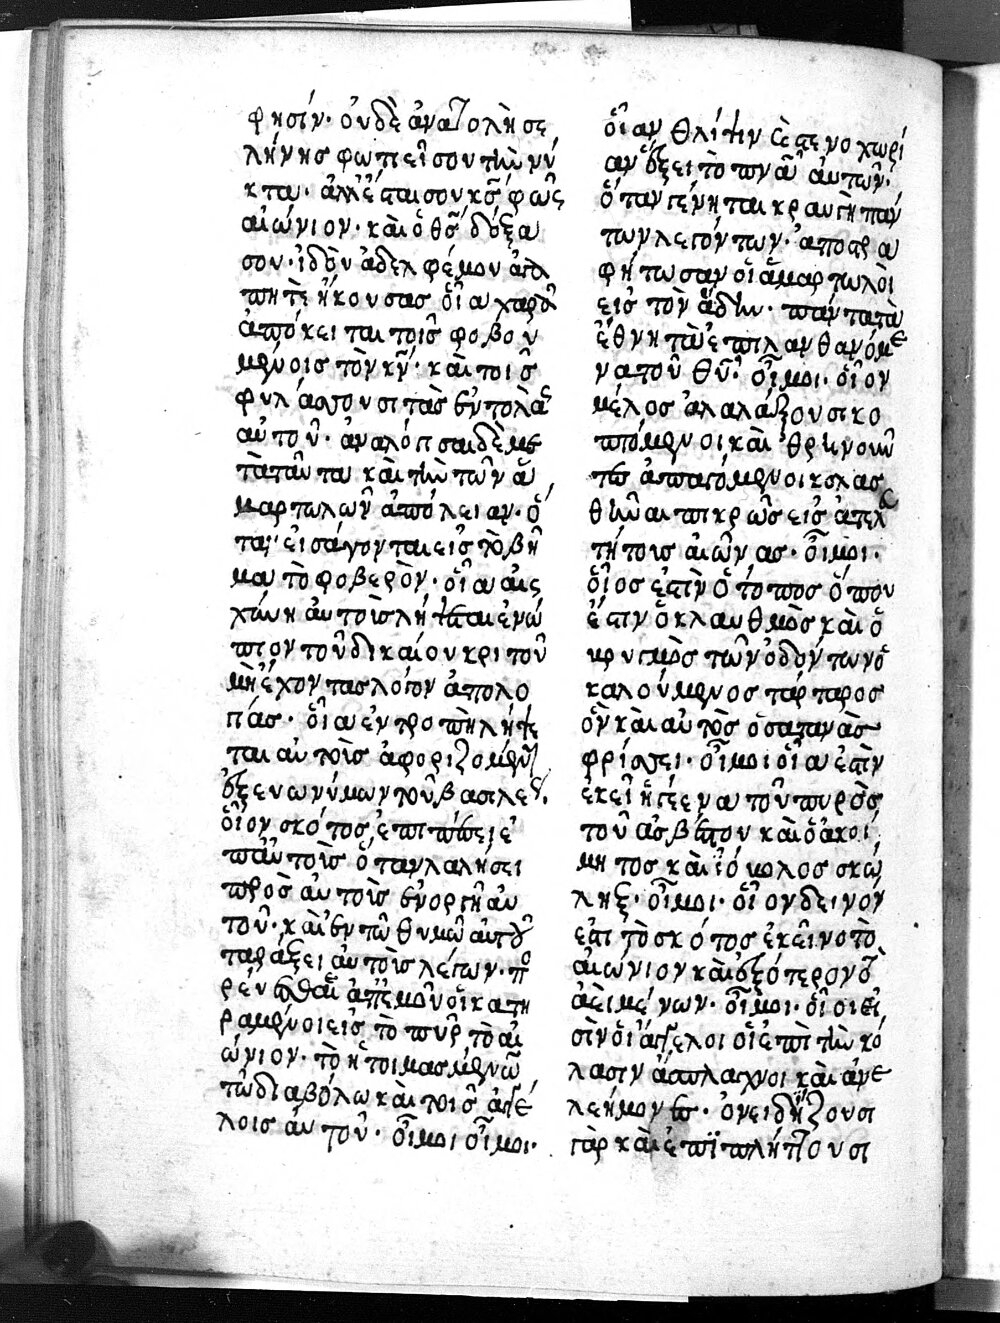 φησίν· οὐδὲ ἀνατολὴ σε
λήνης φωτιεῖ σου τὴν νύ
κτα· ἀλλ' ἔσται σου κς̄ φῶς
αἰώνιον· καὶ ὁ θς̄ δόξα
σου· ἰδοὺ ἀδελφέ μου ἀγα
πητὲ ἤκουσας οἵα χαρὰ
ἀπόκειται τοῖς φοβου
μένοις τὸν κν̄· καὶ τοῖς
φυλάσσουσι τὰς ἐντολὰς
αὐτοῦ· ἀναλόγισαι δὲ με
τὰ ταῦτα καὶ τὴν τῶν ἁ
μαρτωλῶν ἀπόλειαν· ὅ
ταν εἰσάγονται εἰς τὸ βῆ
μα τὸ φοβερὸν· οἵα αἰσ
χύνη αὐτοῖς λήψεται ἐνώ
πιον τοῦ δικαίου κριτοῦ
μὴ ἔχοντας λόγον ἀπολο
γίας· οἵα ἐντροπὴ λήψε
ται αὐτοῖς ἀφοριζομένοις
ἐξ ενωνύμων τοῦ βασιλέως·
οἷον σκότος ἐπιπέσει ἐ
π' αὐτοῖς ὅταν λαλήσει
πρὸς αὐτοῖς ἐν ὀργῆ αὐ
τοῦ· καὶ ἐν τῶ θυμῶ αὐτοῦ
ταράξει αὐτοῖς λέγων· πο
ρεύεσθαι ἀπ' ἐμοῦ οἱ κατη
ραμένοι εἰς τὸ πῦρ τὸ αἰ
ώνιον· τὸ ἡτοιμασμένω
τῶ διαβόλω καὶ τοῖς ἀγγέ
λοις αὐτοῦ· οἴμοι οἴμοι·
οἵαν θλίψιν καὶ στενοχωρί
αν ἕξει τὸ πνᾶ αὐτῶν·
ὅταν γένηται κραυγὴ πάν
των λεγόντων· ἀποστρα
φήτωσαν οἱ ἁμαρτωλοὶ
εἰς τὸν ἅδην· πάντα τὰ
ἔθνη τὰ ἐπιλανθανόμε
να τοῦ θῦ· οἴμοι· οἷον
μέλος ἀλαλάζουσι κο
πτόμενοι καὶ θρηνοῦν
τες ἀπαγόμενοι κολασ
θῆναι πικρῶς εἰς ἀτελ
τήτοις αἰῶνας· οἴμοι·
οἷος ἐστὶν ὁ τόπος ὅπου
ἐστιν ὁ κλαυθμὸς καὶ ὁ
βρυγμὸς τῶν ὀδόντων ὁ
καλούμενος τάρταρος
ὃν καὶ αὐτὸς ὁ σατανὰς
φρίσσει· οἴμοι οἵα ἐστὶν
ἐκεῖ ἡ γέενα τοῦ πυρὸς
τοῦ ἀσβέστου καὶ ὁ ἀκοί
μητος καὶ ἰόβολος σκώ
ληξ· οἴμοι· οἷον δεινόν
ἐστι τὸ σκότος ἐκεῖνο τὸ
αἰώνιον καὶ ἐξότερον τὸ
ἀεὶ μένων· οἴμοι· οἷοι εἰ
σὶν οἱ ἄγγελοι οἱ ἐπὶ τὴν κό
λασιν ἄσπλαχνοι καὶ ἀνε
λεήμονες· ὀνειδίζουσι
γὰρ καὶ ἐπιπλήττουσι